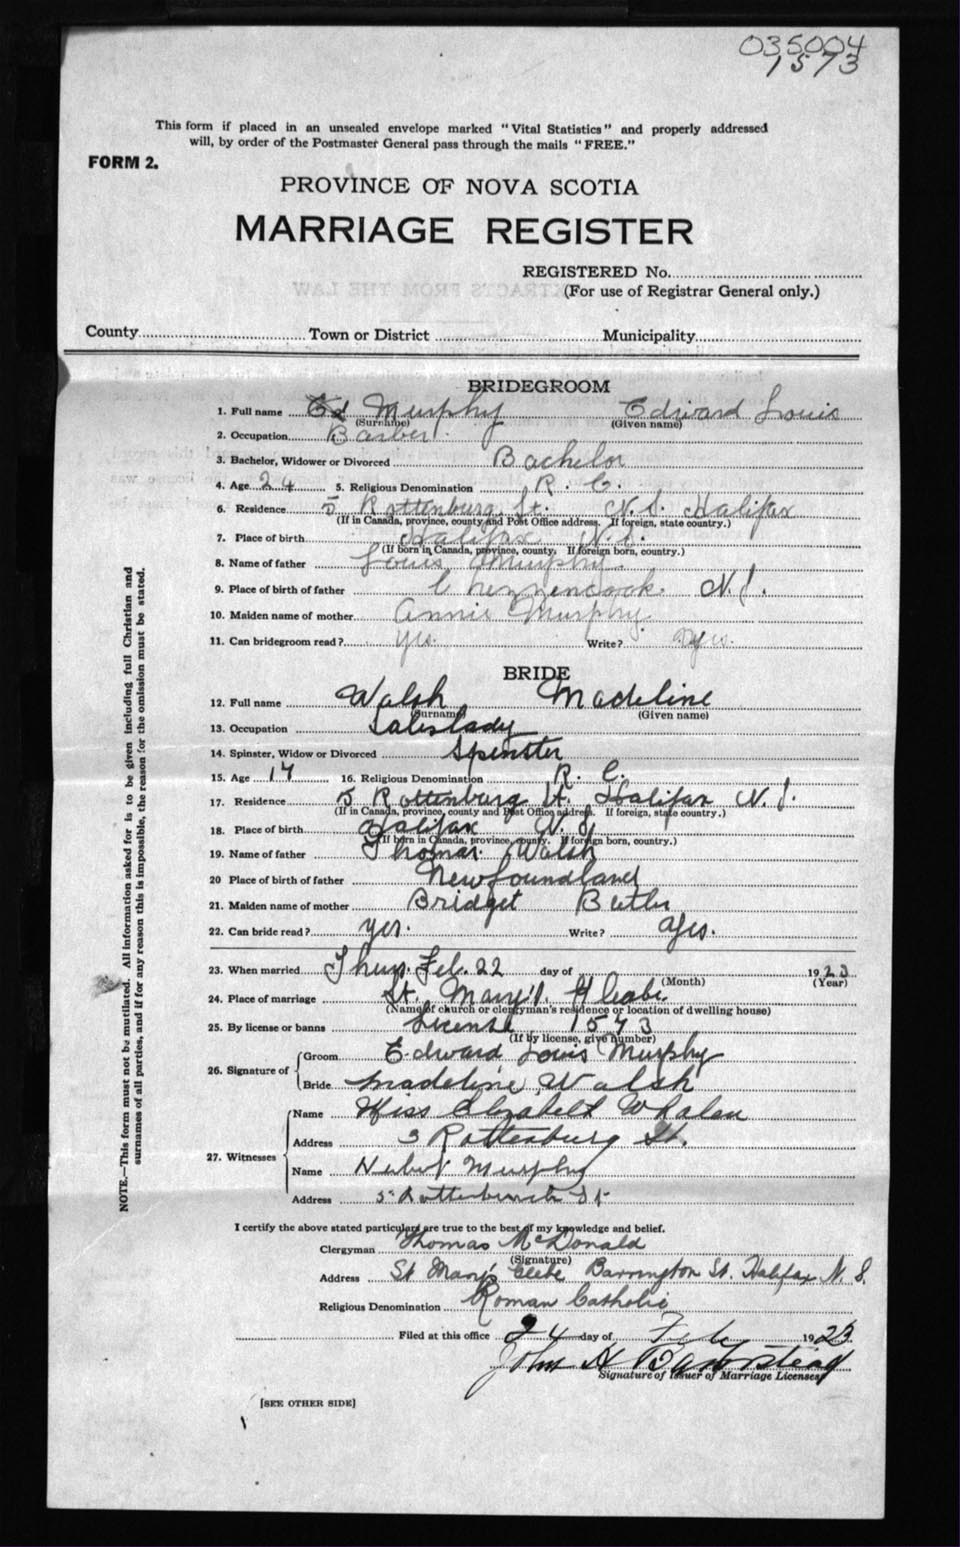 035004
1573
This form if placed in an unsealed envelope marked "Vital Statistics" and properly addressed
will, by order of the Postmaster General pass through the mails "FREE."
FORM 2.
PROVINCE OF NOVA SCOTIA
MARRIAGE REGISTER
REGISTERED No.
(For use of Registrar General only.)
County Town or District Municipality
BRIDEGROOM
1. Full name Murphy Edward Louis
(Surname) (Given name)
2. Occupation Barber.
3. Bachelor, Widower or Divorced Bachelor
4. Age 24 5. Religious Denomination R. C.
6. Residence 5 Rottenburg St. N.S. Halifax
(If in Canada, province, county and Post Office address. If foreign, state country.)
7. Place of birth Halifax N.S.
(If born in Canada, province, county. If foreign born, country.)
8. Name of father Louis Murphy.
9. Place of birth of father N.S.
10. Maiden name of mother Annie Murphy.
11. Can bridegroom read? yes. Write? yes.
BRIDE
12. Full name Walsh Madeline
(Surname) (Given name)
13. Occupation Saleslady
14. Spinster, Widow or Divorced Spinster
15. Age 16. Religious Denomination R. C.
17. Residence 5 Rottenburg St. Halifax N.S.
(If in Canada, province, county and Post Office address. If foreign, state country.)
18. Place of birth Halifax N.S.
(If born in Canada, province, county. If foreign born, country.)
19. Name of father Thomas Walsh
20 Place of birth of father Newfoundland
21. Maiden name of mother Bridget Butler
22. Can bride read? yes. Write? yes.
23. When married Thurs. Feb. 22 day of 1923
(Month) (Year)
24. Place of marriage St. Mary's Glebe.
(Name of church or clergyman's residence or location of dwelling house)
25. By license or banns License 1573
(If by license, give number)
26. Signature of Groom Edward Louis Murphy
Bride Madeline Walsh
27. Witnesses Name Miss Elizabeth Whalen
Address Rottenburg St.
Name Murphy
Address 5 St
I certify the above stated particulars are true to the best of my knowledge and belief.
Clergyman Thomas McDonald
(Signature)
Address St Mary's Glebe Barrington St. Halifax N. S.
Religious Denomination Roman Catholic
Filed at this office 24 day of Feb 1923
John A
Signature of Issuer of Marriage Licenses
[SEE OTHER SIDE]
NOTE.—This form must not be mutilated. All information asked for is to be given including full Christian and
surnames of all parties, and if for any reason this is impossible, the reason for the omission must be stated.